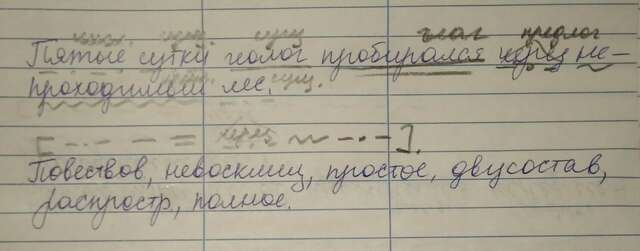 числ. сущ. сущ глаг предлог
Пятые сутки геолог пробирался через не-
проходимый лес. сущ.
[ через ].
Повествов, невосклиц, простое, двусостав,
распростр, полное.